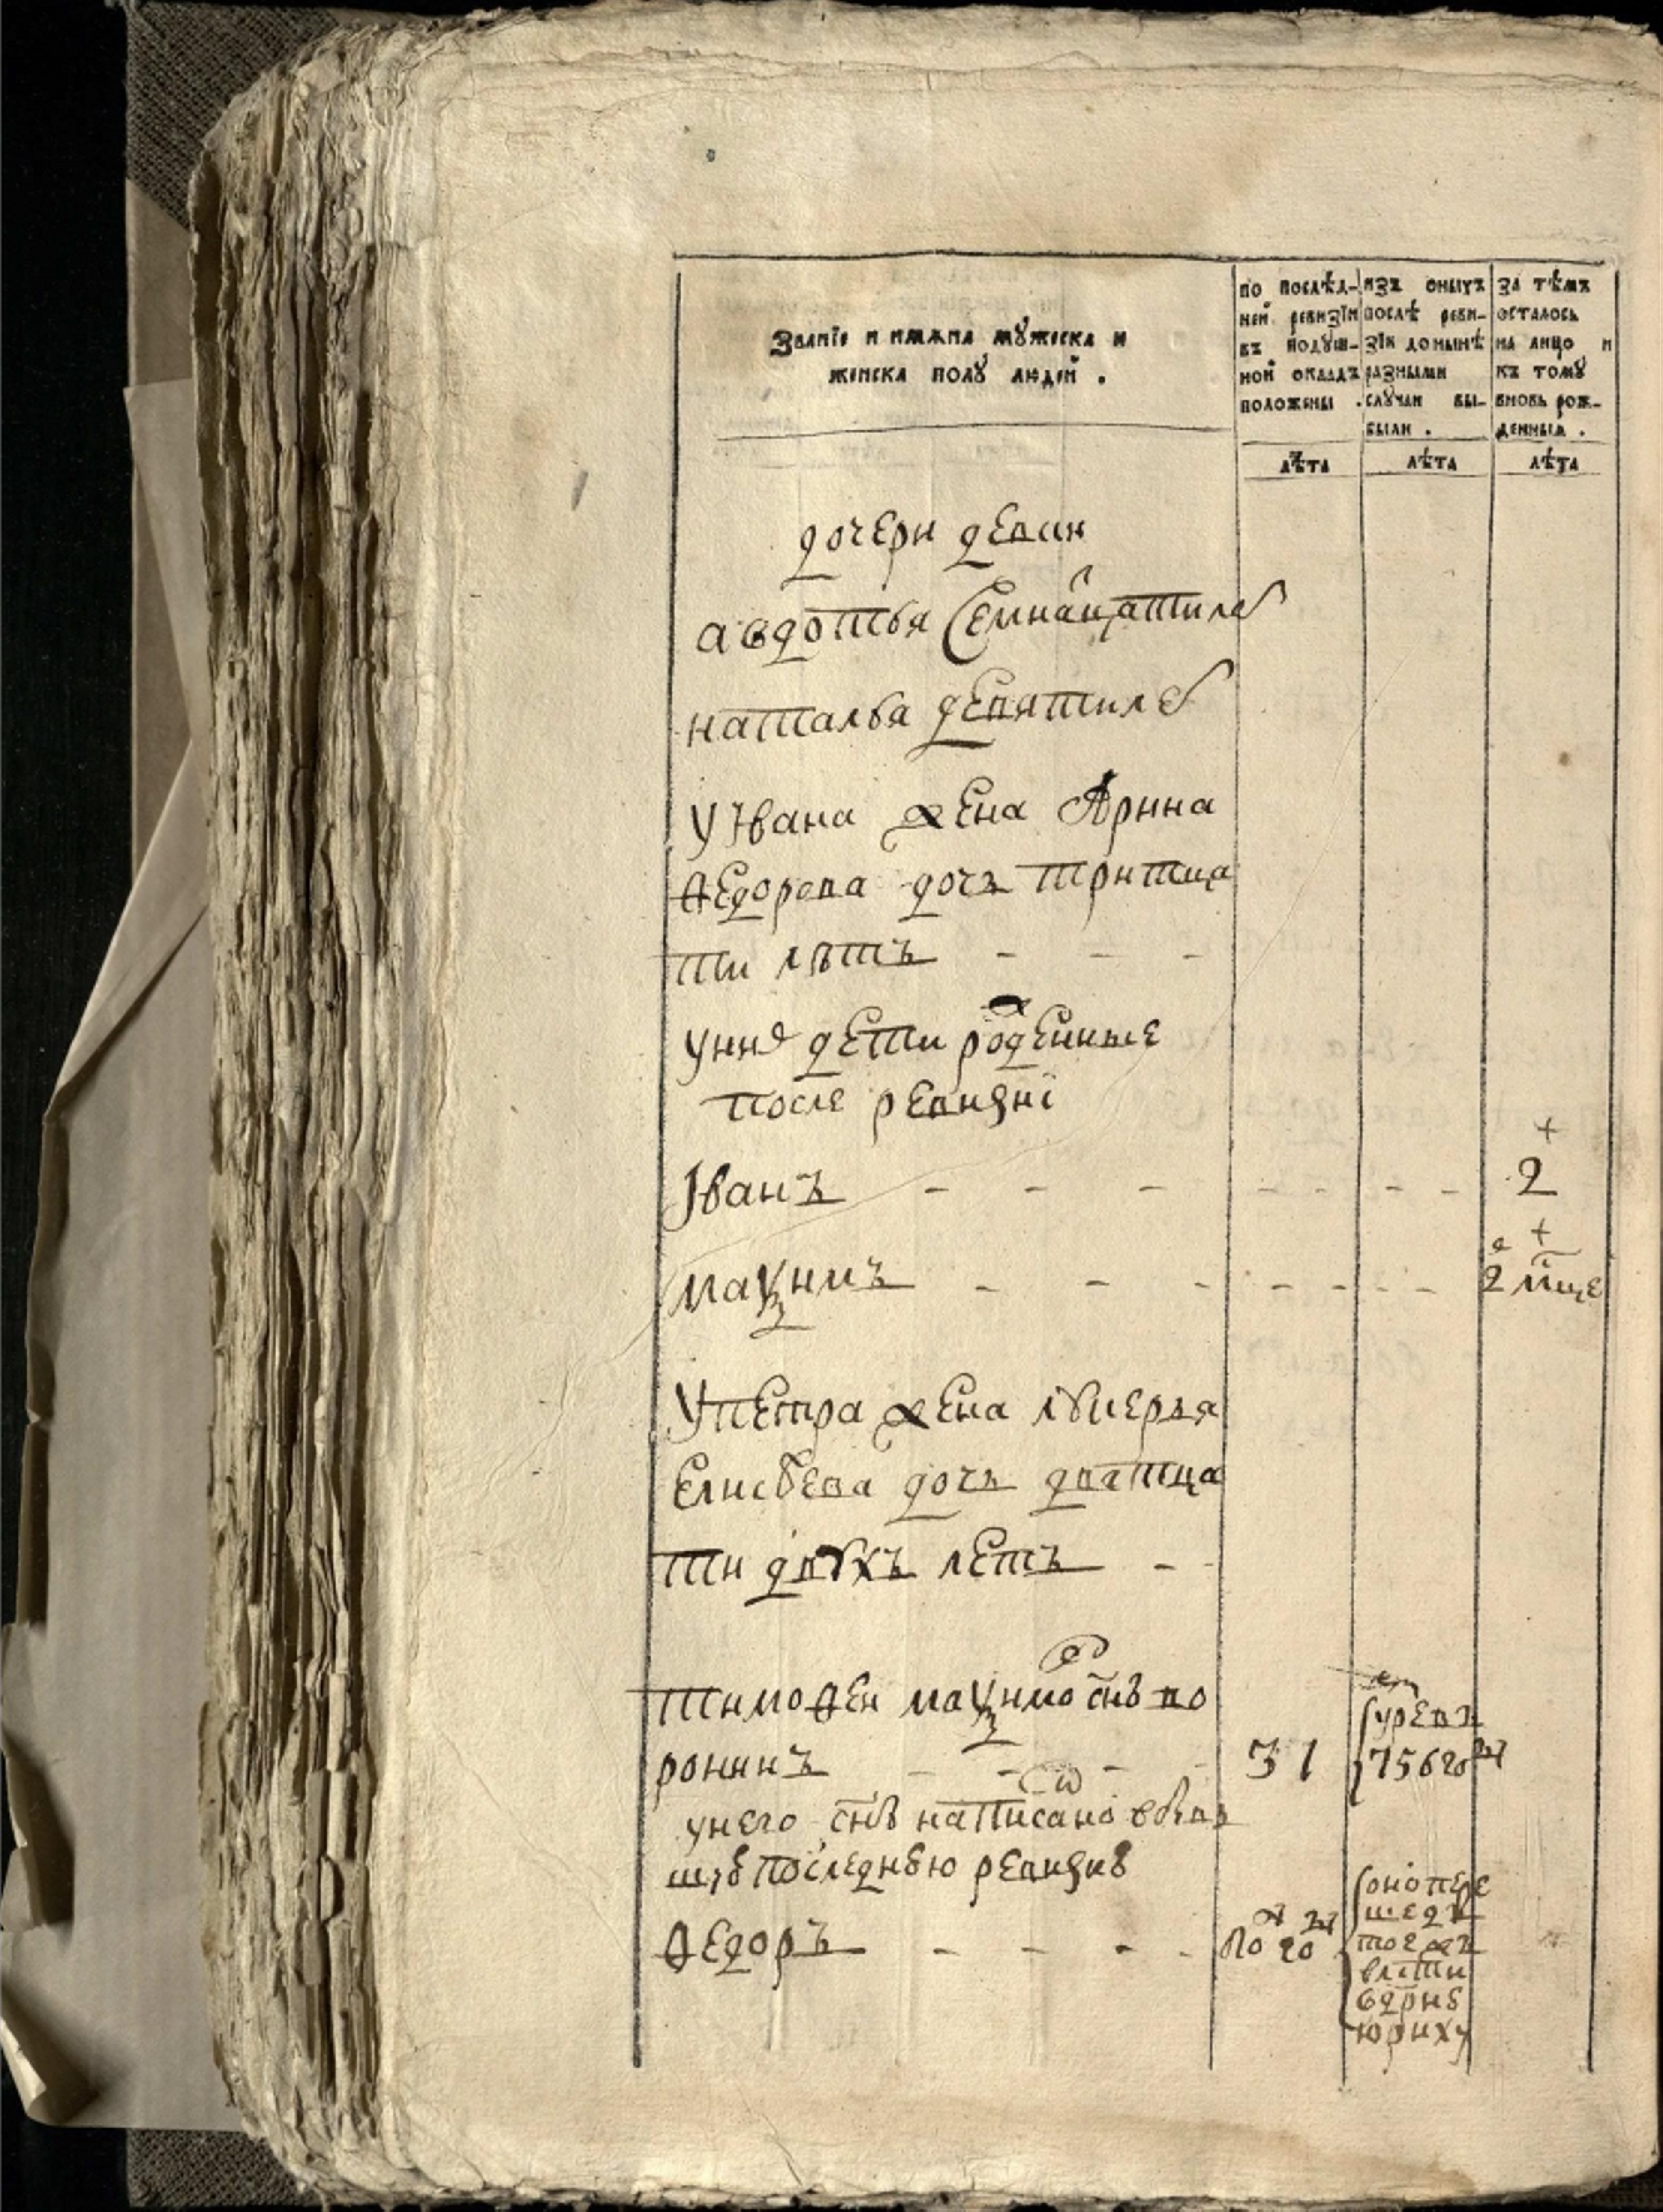 Званїе и имѧна мꙋжеска и
женска полꙋ людей .
по послѣд-
ней ревизїи
въ подꙋш-
ной окладъ
положены .
изъ оныхъ
послѣ реви-
зїи донынѣ
разными
слꙋчаи вы-
были .
за тѣмъ
осталось
на лицо и
къ томꙋ
вновь рож-
денныя .
лѣта
лѣта
лѣта
дочери девки
авдотья семнацати лѣ
наталья девяти лѣ
у Ивана жена Арина
Ѳедорова дочь тритца
ти лѣтъ - - -
у нил дети рожденные
после ревизиї
Іванъ - - - - - - - - 2
маѯимъ - - - - - - - - 2 мце
у петра жена лукерья
Елисѣева дочь дватца
ти двухъ летъ - -
тимоѳеи маѯимо снъ во
ронинъ - - - - 31
умре въ
756 год
у него снъ написано въ бывъ
шую последнюю ревизию
Ѳедоръ - - - - -
оно пере
шедъ